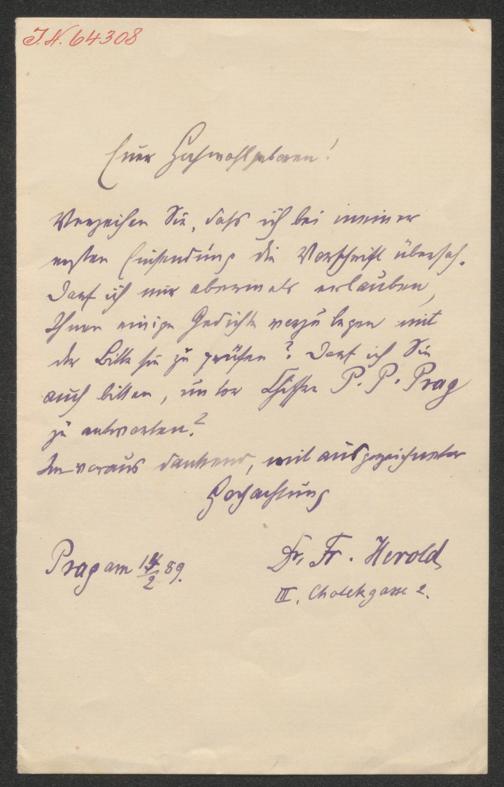 I.N. 64308
Euer Hochwohlgeboren!
Verzeihen Sie, dass ich bei meiner
ersten Einsendung die Vorschrift übersah.
Darf ich mir abermals erlauben,
Ihnen einige Gedichte vorzulegen mit
der Bitte sie zu prüfen? Darf ich Sie
auch bitten, unter Chiffre P. P. Prag
zu antworten?
Im voraus dankend, mit ausgezeichneter
Hochachtung
Dr. Fr. Herold
Prag am /2 89.
III. Chotekgasse 2.